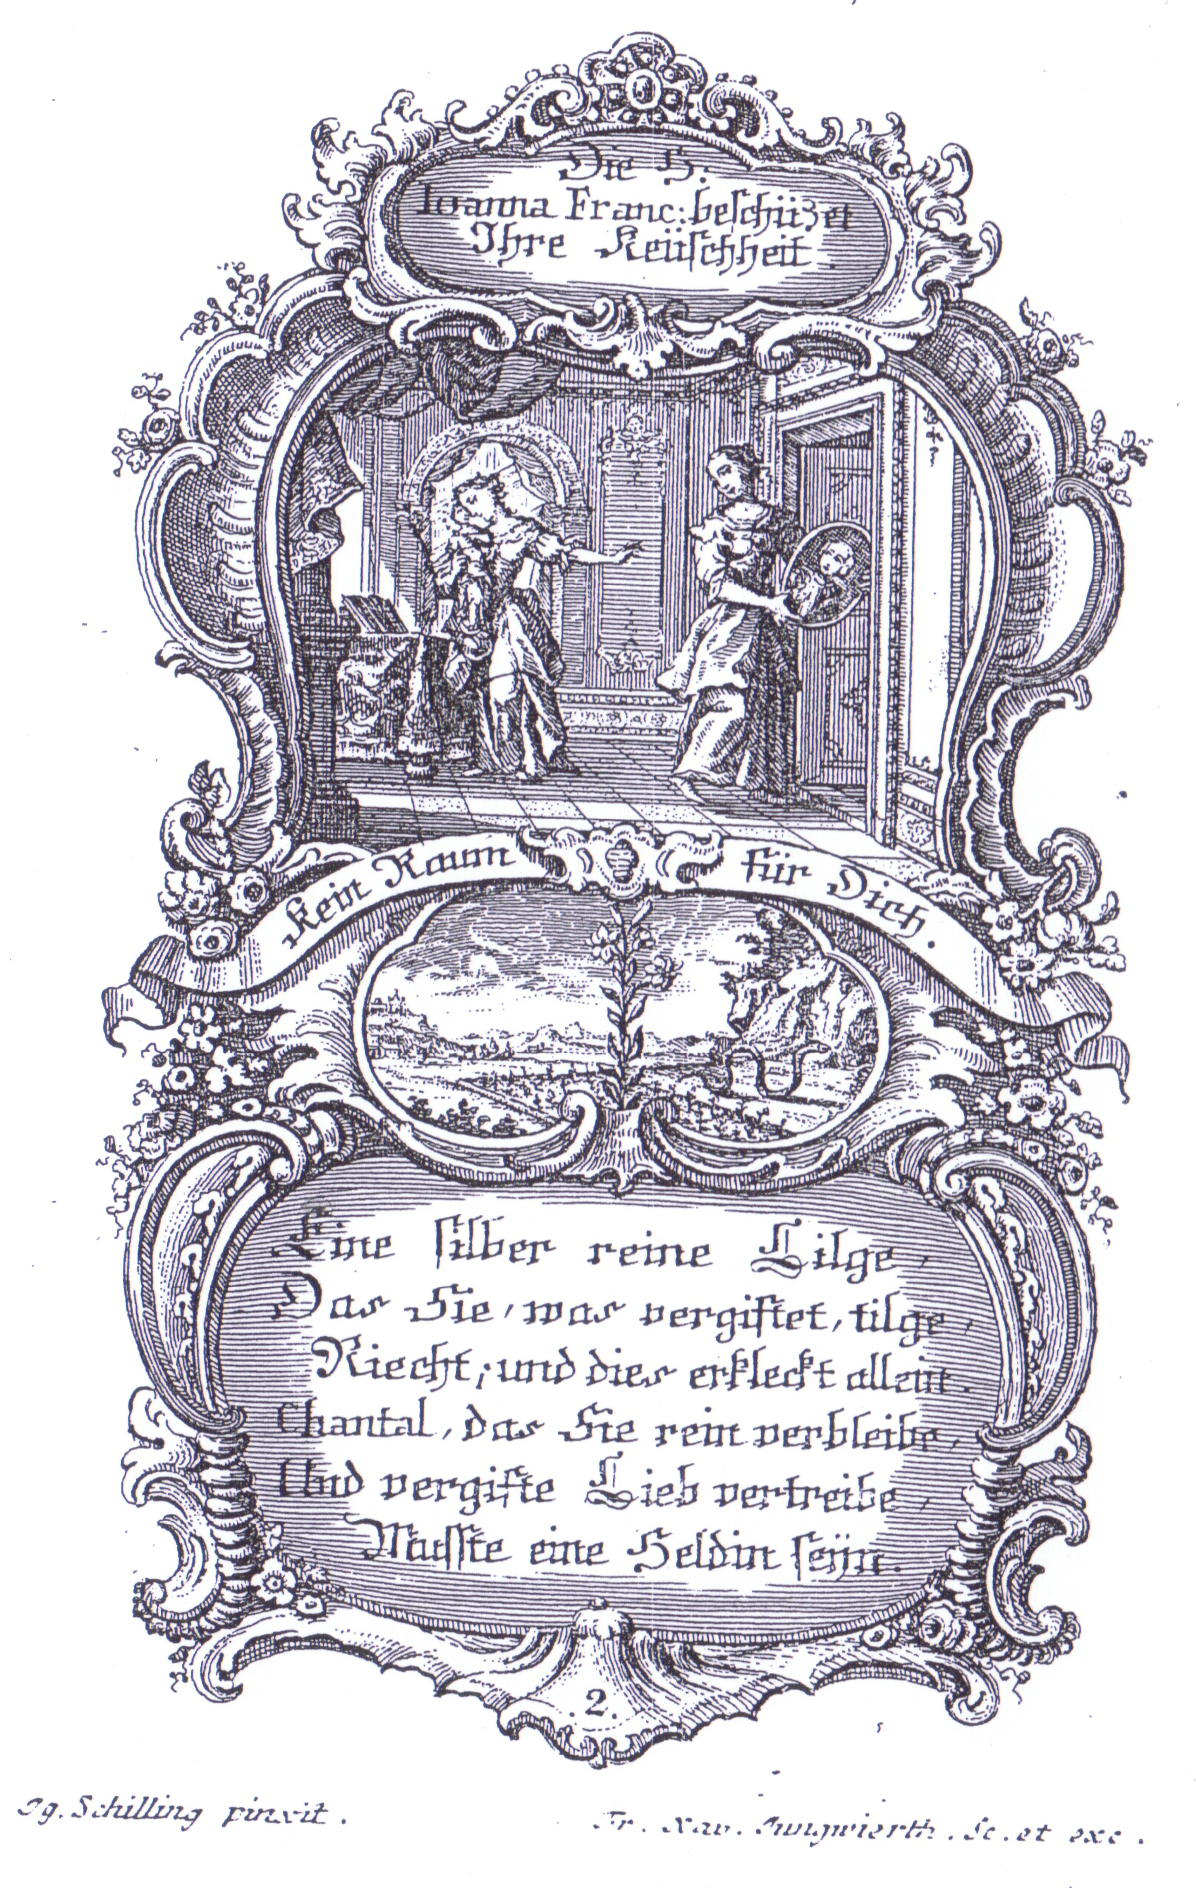 Die H.
Ioanna Franc: beschüzet
Ihre Keüschheit.
Kein Raum für Dich.
Eine silber reine Lilge,
Das Sie, was vergiftet, tilge,
Riecht; und dies erkleckt allein.
Chantal, das Sie rein verbleibe,
Und vergifte Lieb vertreibe,
Musste eine Heldin seÿn.
.2.
Ig. Schilling pinxit.
Fr. Xav. Jungwierth. Sc. et exc.